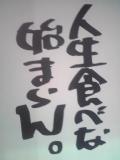 人生食べな
始まらん。